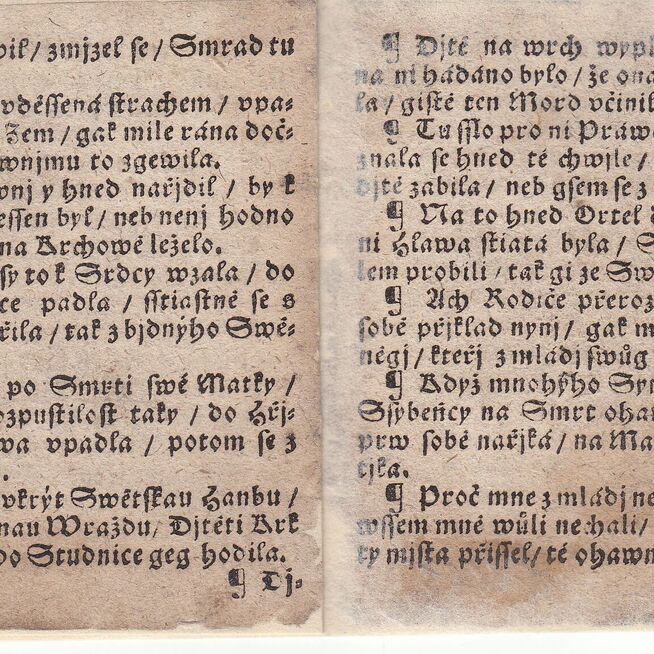 wil / zmjzel se / Smrad tu
vděssená strachem / vpa-
Zem / gak mile rána doč-
wnjmu to zgewila.
wnj y hned nařjdil / by k
essen byl / neb nenj hodno
na Krchowě leželo.
sy to k Srdcy wzala / do
ce padla / sstiastně se s
řila / tak z bjdnýho Swě-
po Smrti swé Matky /
ozpustilost taky / do Hřj-
wa vpadla / potom se z
.
vkrýt Swětskau Hanbu /
nau Wraždu / Djtěti Krk
do Studnice geg hodila.
¶ Dj-
¶ Djtě na wrch wypl
na ni hádáno bylo / že ona
la / gistě ten Mord včinil
¶ Tu sslo pro ni Práw
znala se hned té chwjle /
djtě zabila / neb gsem se z
¶ Na to hned Ortel
ni Hlawa stiatá byla / S
lem probili / tak gi ze Sw
¶ Ach Rodiče přeroz
sobě přjklad nynj / gak m
něgj / kteřj z mládj swůg
¶ Když mnohýho Sy
Ssybeńcy na Smrt ohaw
prw sobě nařjká / na Ma
tjka.
¶ Proč mne z mládj ne
wssem mně wůli nechali /
ty mjsta přissel / té ohawn